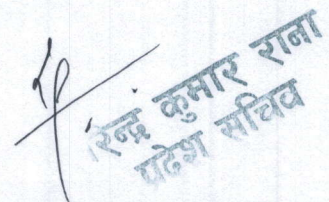 रिन्द्र कुमार राना
प्रदेश सचिव